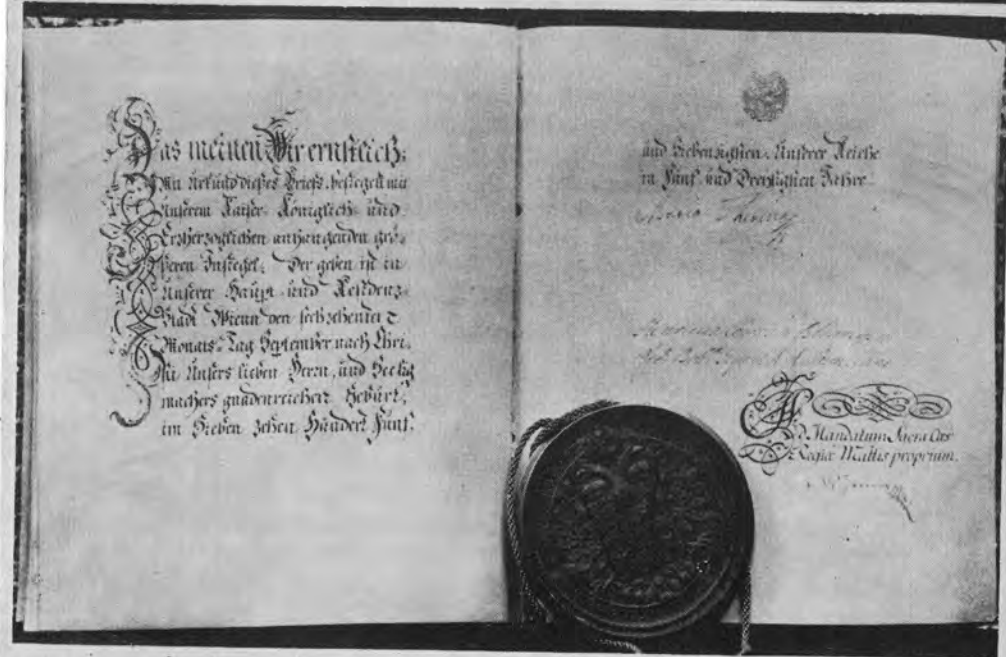 Das meinen Wir ernstlich;
Mit Urkund dießes Briefs, besiegelt mit
Unserem Kaiser- Königlich- und
Erzherzoglichen anhangenden grö-
ßeren Insiegel; Der geben ist in
Unserer Haupt- und Residenz-
Stadt Wienn den sechzehenten
Monats-Tag September nach Chri-
sti Unsers lieben Herrn, und Seelig-
machers gnadenreicher Geburt,
im Sieben zehen Hundert Fünf
und Siebenzigsten, Unserer Reiche
in Fünf und Dreyßigsten Jahre
Maria Theresia
Ad Mandatum Sacræ Cæs
Regiæ Mattis proprium.